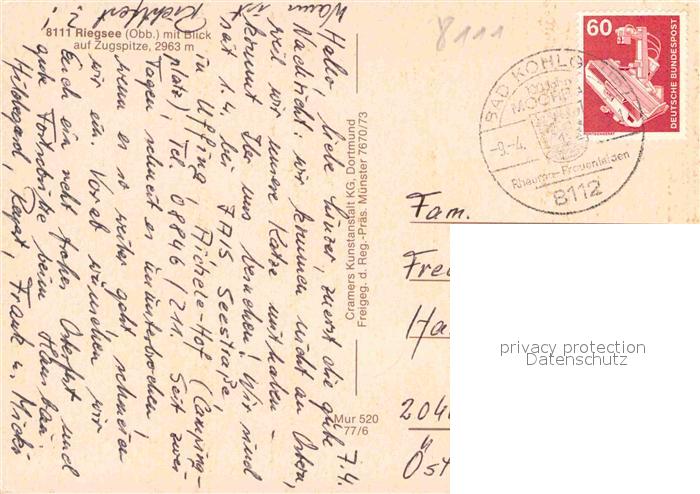 8111 Riegsee (Obb.) mit Blick
auf Zugspitze, 2963 m
7.4.
Hallo, liebe Linzer, zuerst die gute
Nachricht: wir kommen nicht an Ostern,
weil wir unsere Katze mithaben -
Wann ist
kommt Ihr uns besuchen! Wir sind
seit 1.4. bei 7715 Seestraße,
in Uffing, Aichele-Hof (Camping-
platz), Tel. 08846/211. Seit zwei
Tagen schneit es ununterbrochen
wenn es so weiter geht, schneien
wir ein. Vorab wünschen wir
Euch ein recht frohes Osterfest und
gute Fortschritte beim Hausbau.
Hildegard, Frank u.
Richtfest
?!
Cramers Kunstanstalt KG, Dortmund
Freigeg. d. Reg.-Präs. Münster 7670/73
Mur 520
77/6
8111
60
DEUTSCHE BUNDESPOST
BAD KOHLG
MOOR
-9.-4.
Rheuma-Frauenleiden
8112
Fam.
Fre
Ha
204
Öst
privacy protection
Datenschutz